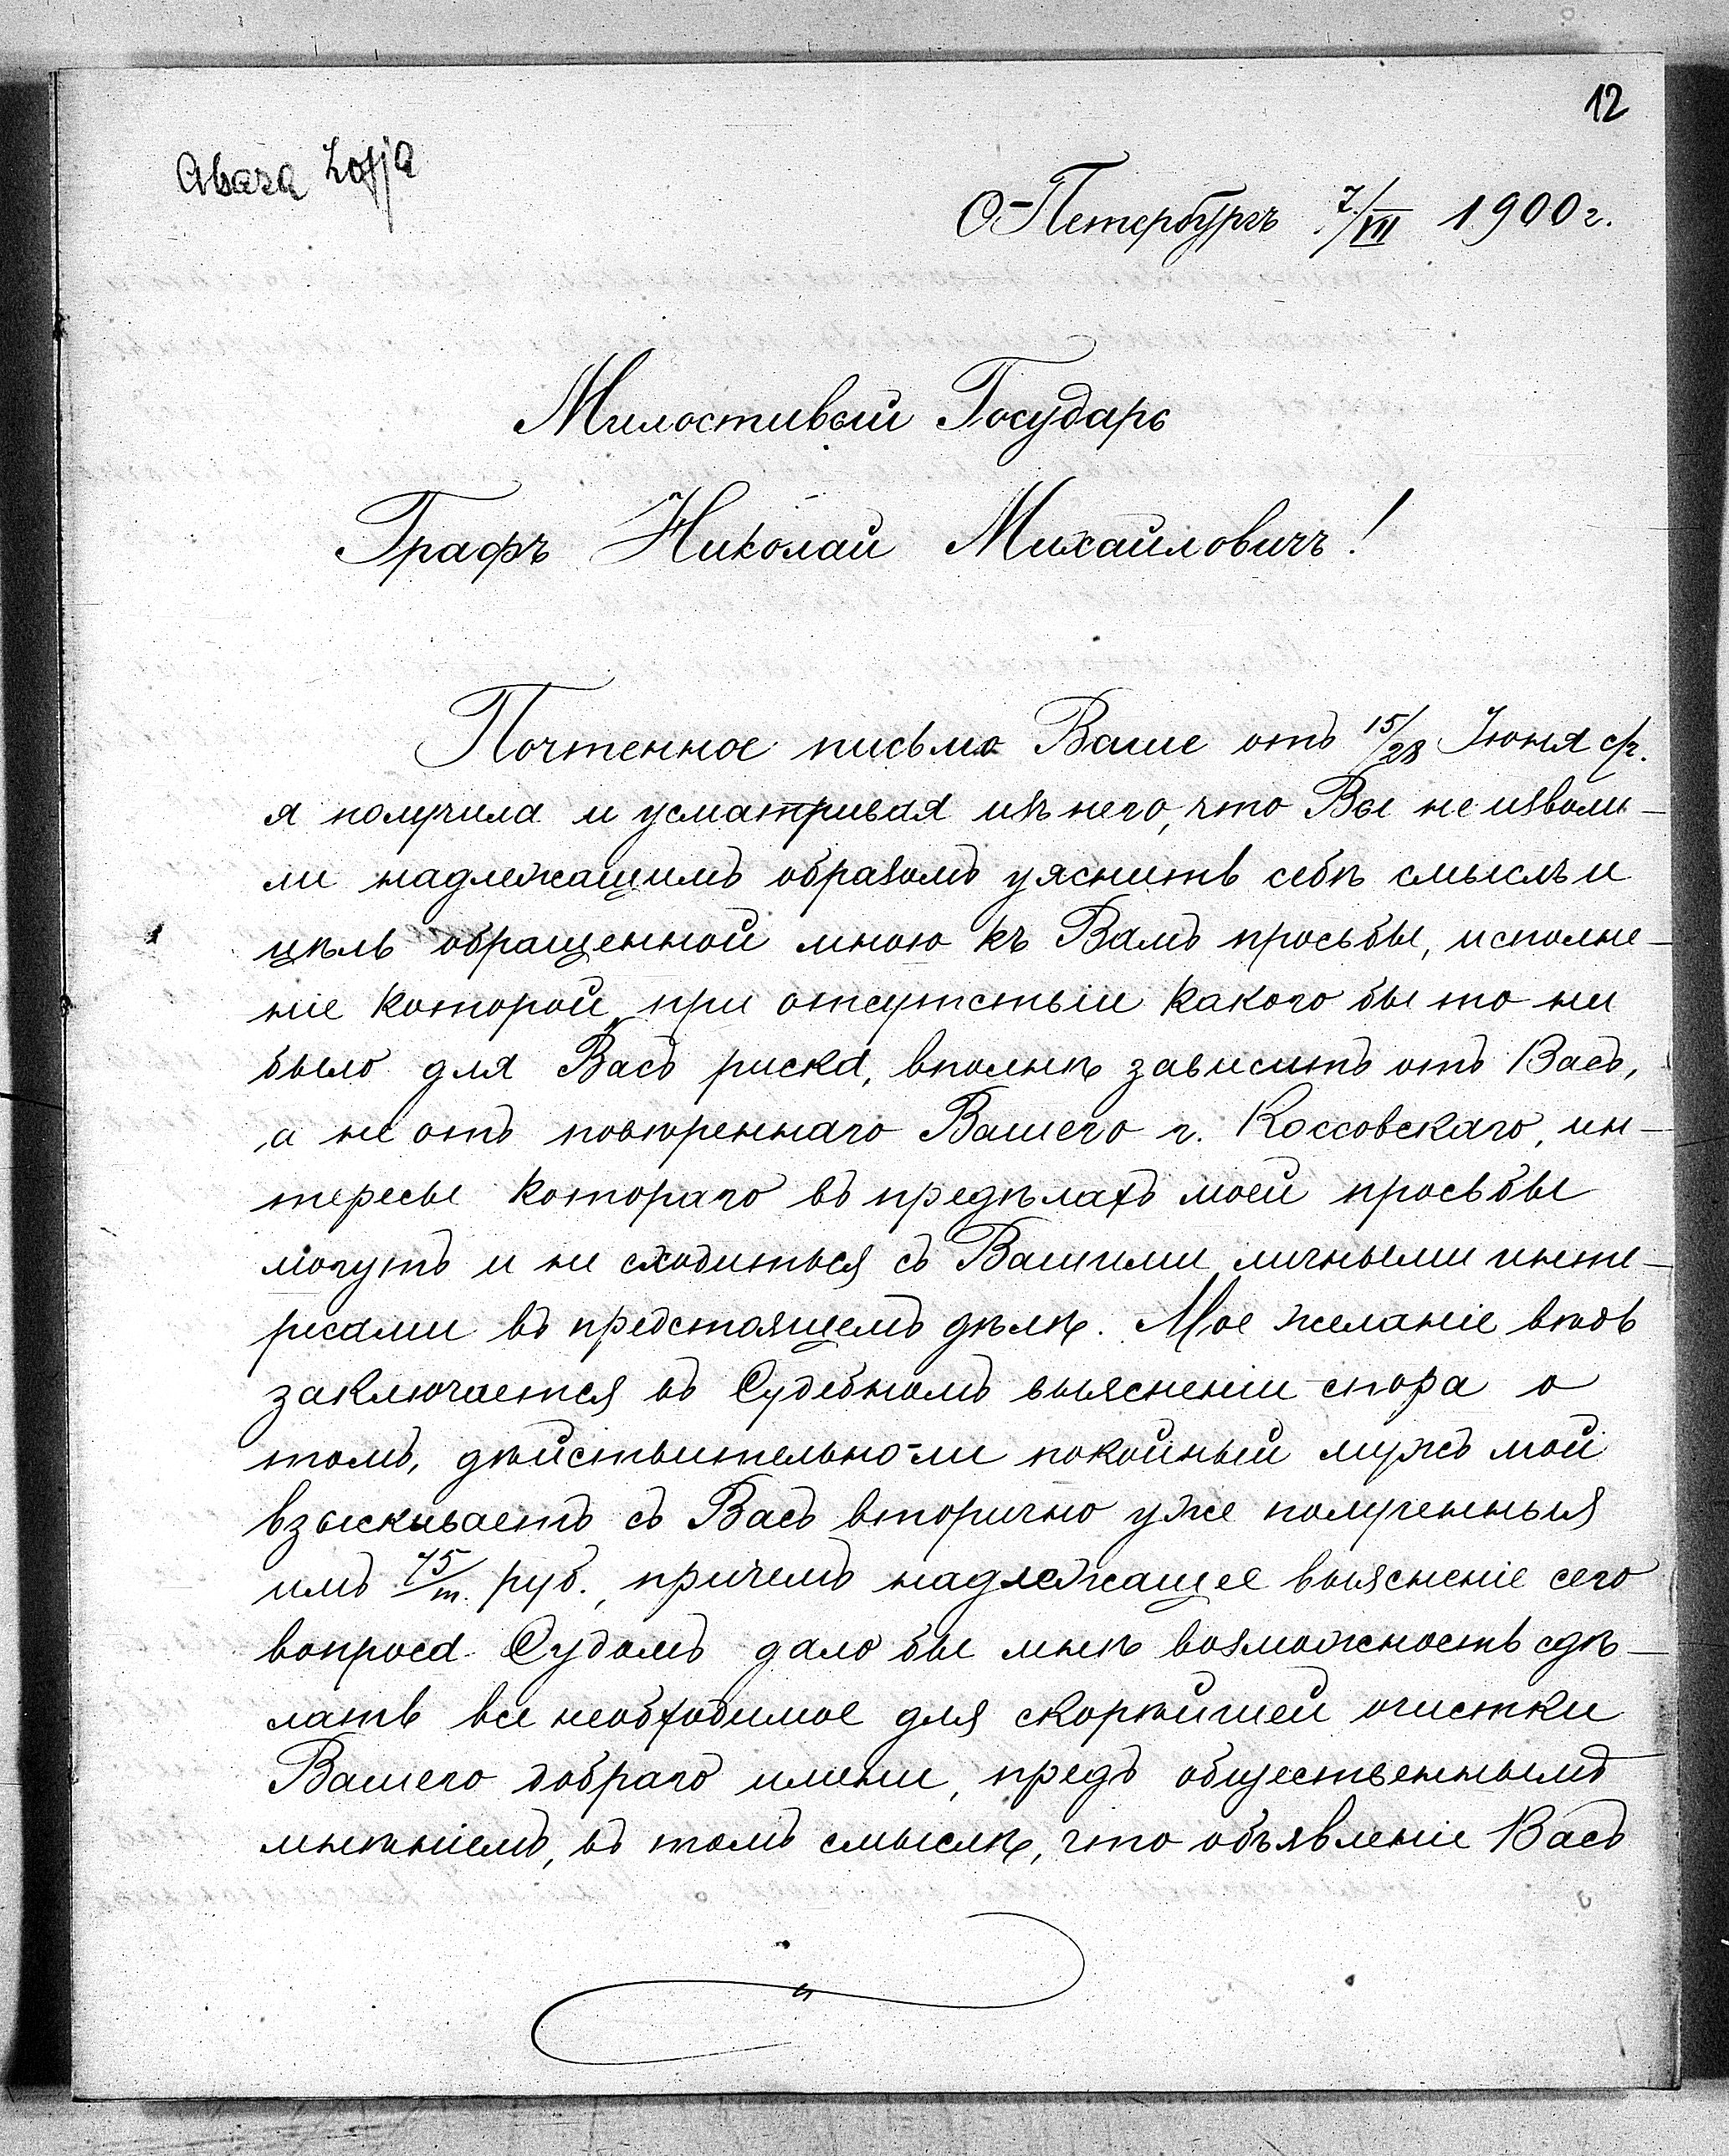 12
Abaza Zofja
С-Петербургъ 7/VII 1900 г.
Милостивый Государь
Графъ Николай Михайловичъ!
Почтенное письмо Ваше отъ 15/28 Іюня с/г.
я получила и усматривая изъ него, что Вы не изволи-
ли надлежащимъ образомъ уяснить себѣ смыслъ и
цѣль обращенной мною къ Вамъ просьбы, исполне-
ніе которой, при отсутствіи какого бы то ни
было для Васъ риска, вполнѣ зависитъ отъ Васъ,
а не отъ повѣреннаго Вашего г. Коссовскаго, ин-
тересы котораго въ предѣлахъ моей просьбы
могутъ и не сходиться съ Вашими личными инте-
ресами въ предстоящемъ дѣлѣ. Мое желаніе вѣдь
заключается въ Судебномъ выясненіи спора о
томъ, дѣйствительно-ли покойный мужъ мой
взыскиваетъ съ Васъ вторично уже полученныя
имъ 75/т. руб., причемъ надлежащее выясненіе сего
вопроса Судомъ дало бы мнѣ возможность сдѣ-
лать все необходимое для скорѣйшей очистки
Вашего добраго имени, предъ общественнымъ
мнѣніемъ, въ томъ смыслѣ, что объявленіе Васъ